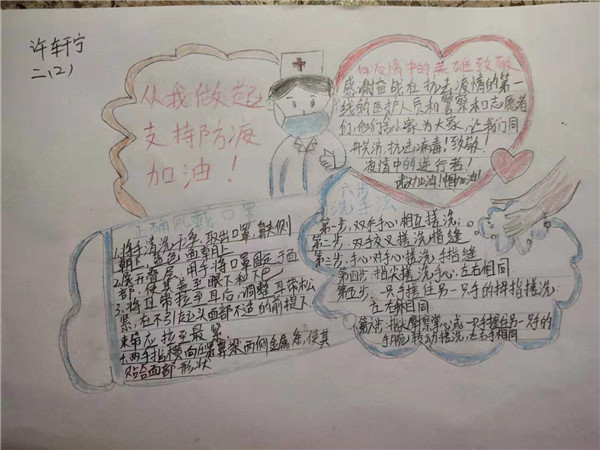 许轩宁
二(2)
从我做起
支持防疫
加油！
向疫情中的英雄致敬
感谢奋战在抗击疫情的第一
线的医护人员和警察和志愿者
们,他们舍小家为大家,让我们同
舟共济,抗击病毒！致敬！
疫情中的逆行者！
武汉加油！中国加油！
正确佩戴口罩
1.将手清洗干净,取出口罩,鼻夹侧
朝上,蓝色面朝
2.展开褶层,用手将口罩贴于面
部,使其盖至眼下和下巴
3.将耳带拉至耳后,调整耳带松
紧,在不引起头面部不适的前提下,
来第应拉至最紧
4.两手指横向鼻梁两侧金属条,使其
贴合面部形状
六步
洗手法
第一步:双手手心,相互搓洗
第二步:双手交叉搓洗指缝
第三步:手心对手心搓洗手指缝
第四步:指尖搓洗手心,左右相同
第五步:一只手握住另一只手的拇指搓洗
左右相同
第六步:指尖摩擦掌心或一只手握住另一只手的
手腕转动搓洗,左右手相同